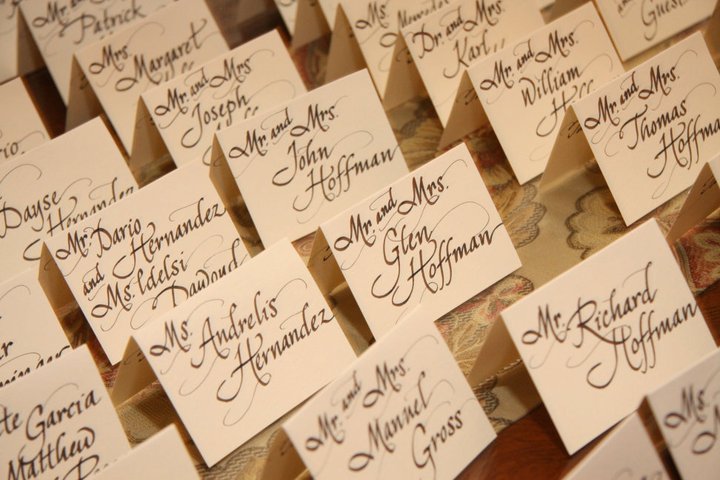 Patrick
Mrs
Margaret
Mr. and Mrs
Joseph
Mr. and Mrs.
John
Hoffman
Mr. and Mrs.
Glen
Hoffman
Mr. and Mrs
Dr. and Mrs
Karl
Mr. and Mrs.
William
Mr. and Mrs.
Thomas
Hoffman
Guest
Dayse
Hernandez
Mr. Dario
Hernandez
and
Ms. Idelsi
Dawoud
Ms. Andrelis
Hernandez
Mr. and Mrs.
Manuel
Gross
Mr. Richard
Hoffman
Garcia
Matthew
Ms.